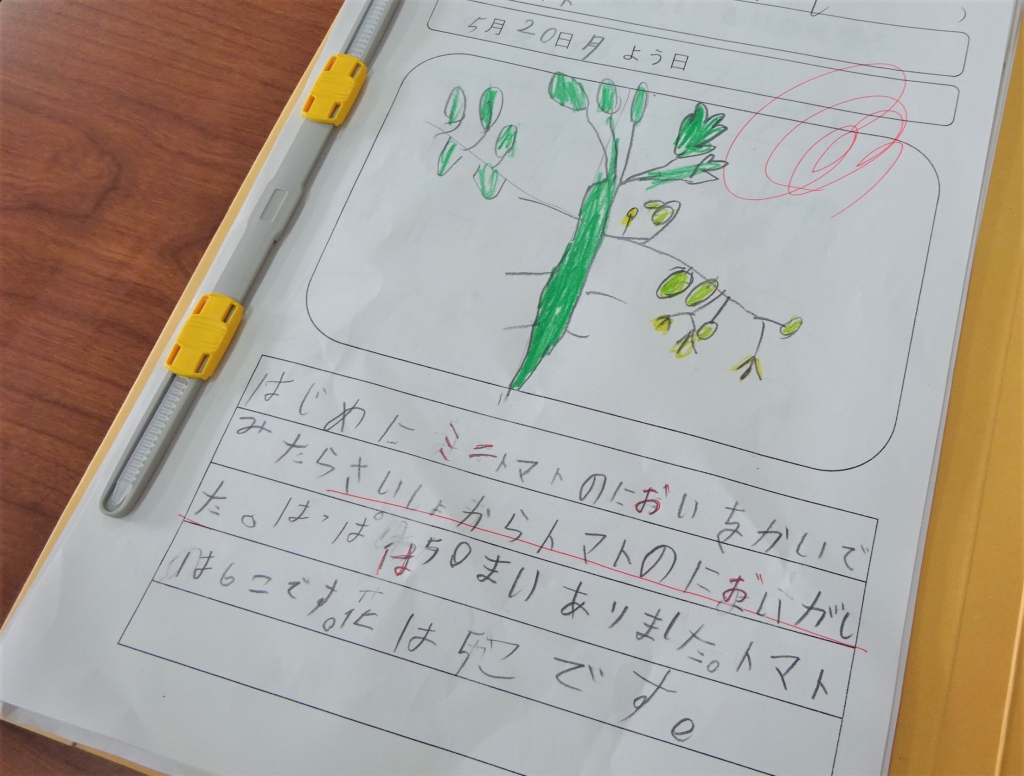 5月20日月よう日
はじめにミニトマトのにおいをかいで
みたらさいしょからトマトのにおいがし
た。はっぱは50まいありました。トマト
は6こです。花は5こです。